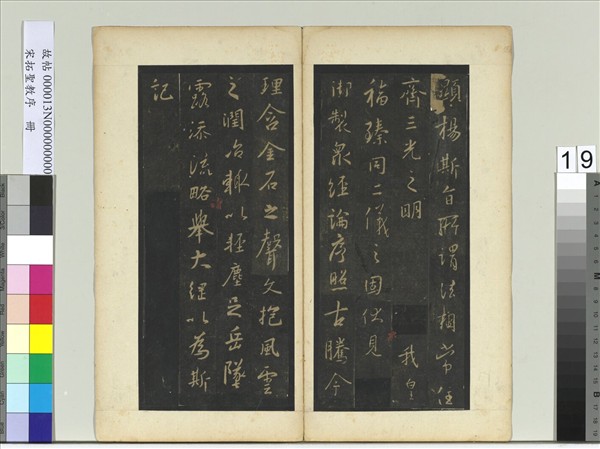 顯揚斯旨所謂法相常住
齊三光之明 我皇
福臻同二儀之固伏見
御製眾經論序照古騰今
理含金石之聲文抱風雲
之潤治輒以輕塵足岳墜
露添流略舉大綱以為斯
記
故帖 000013N000000000
宋拓聖教序 冊
19